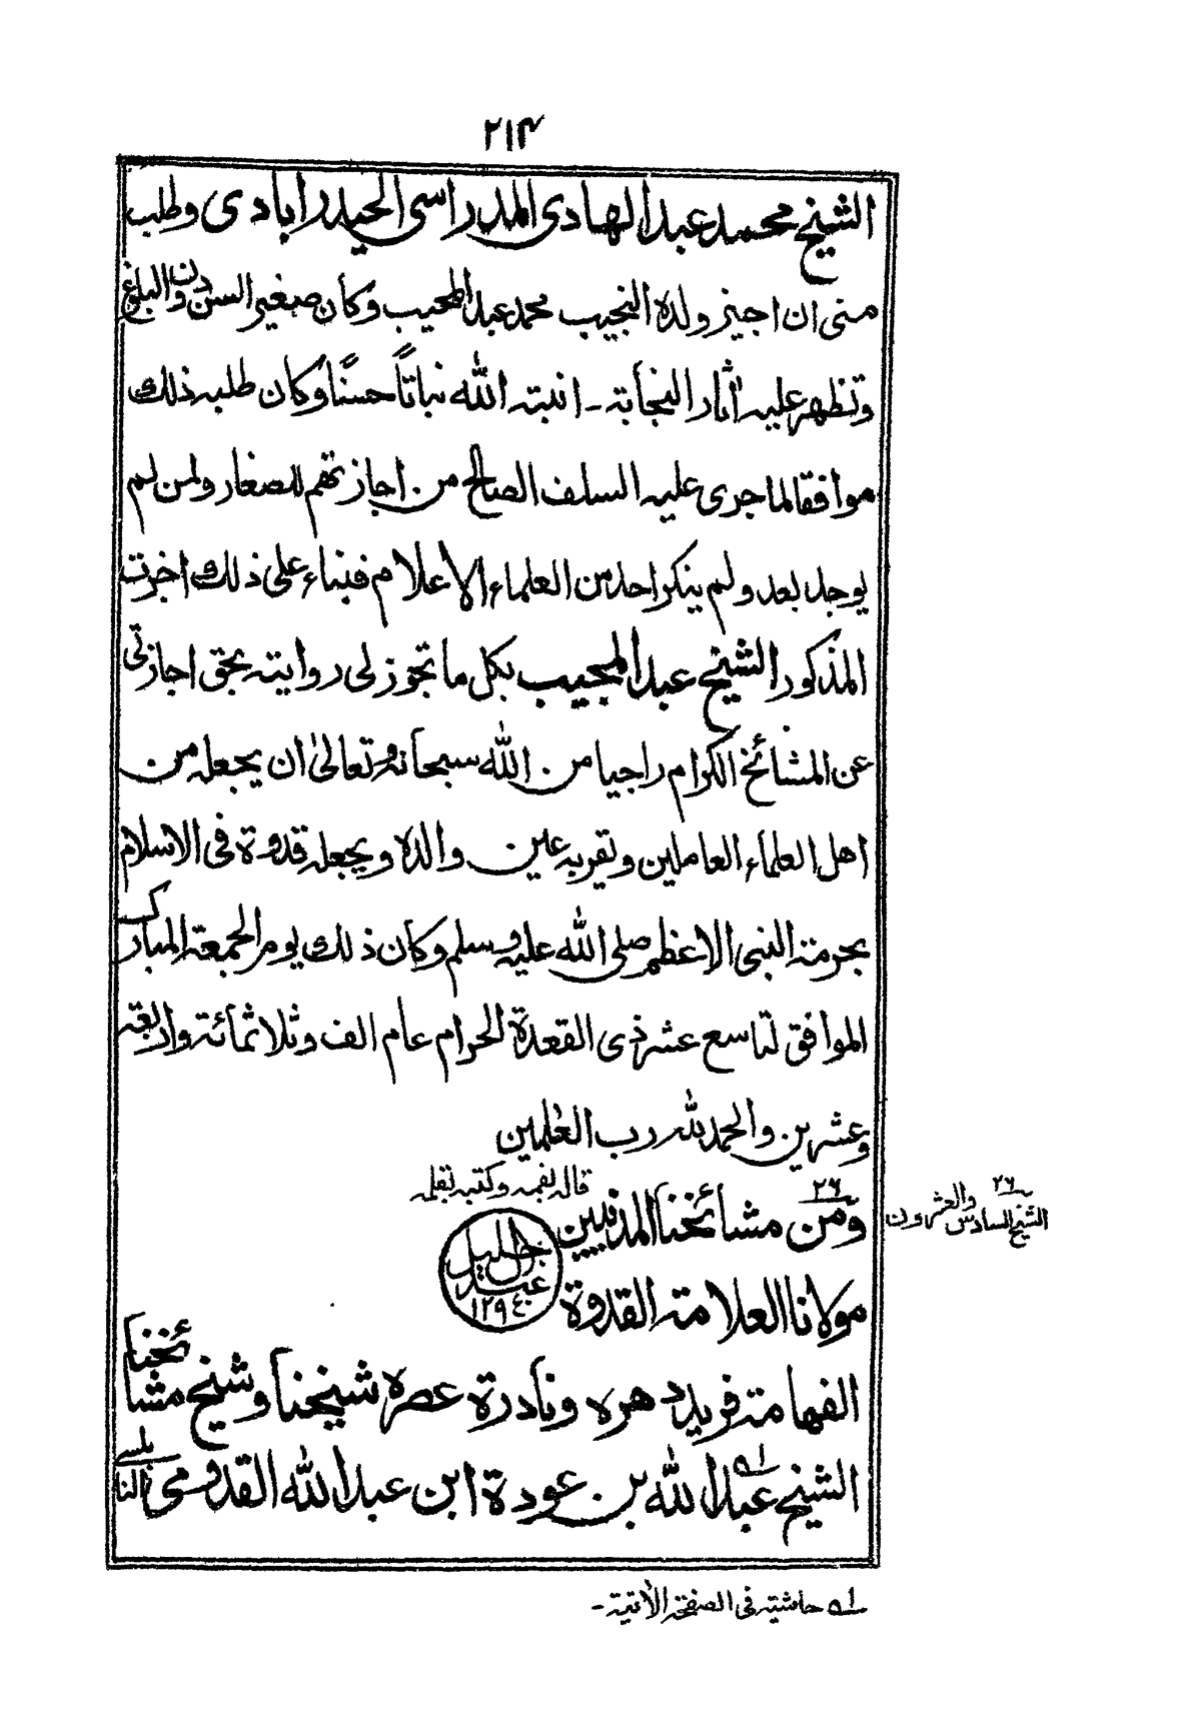 ٢١٤
الشيخ محمد عبد الهادى المدراسى الحيدرابادى وطلب
منى ان اجيز ولده النجيب محمد عبد المجيب وكان صغير السن دون البلوغ
وتظهر عليه اثار النجابة ـ انبته الله نباتاً حسنًا وكان طلبه ذلك
موافقا لما جرى عليه السلف الصالح من اجازتهم للصغار ولمن لم
يوجد بعد ولم ينكر احد من العلماء الاعلام فبناء على ذلك اجزت
المذكور الشيخ عبد المجيب بكل ما تجوز لى روايته بحق اجازتى
عن المشائخ الكرام راجيا من الله سبحانه وتعالىٰ ان يجعله من
اهل العلماء العاملين وتقر به عين والده ويجعله قدوة فى الاسلام
بحرمة النبى الاعظم صلى الله عليه وسلم وكان ذلك يوم الجمعة المبارك
الموافق لتاسع عشر ذى القعدة الحرام عام الف وثلاثمائة واربعة
وعشرين والحمد لله رب العٰلمين
قاله بفمه وكتبه بقلمه
عبد الجليل ١٢٩٤
٢٦
ومن مشائخنا المدنيين
٢٦
الشيخ السادس والعشرون
مولانا العلامة القدوة
الفهامة فريد دهره ونادرة عصره شيخنا وشيخ مشائخنا
الشيخ عبد الله بن عودة ابن عبد الله القدومى النابلسى
له حاشيته فى الصفحة الاٰتية ـ